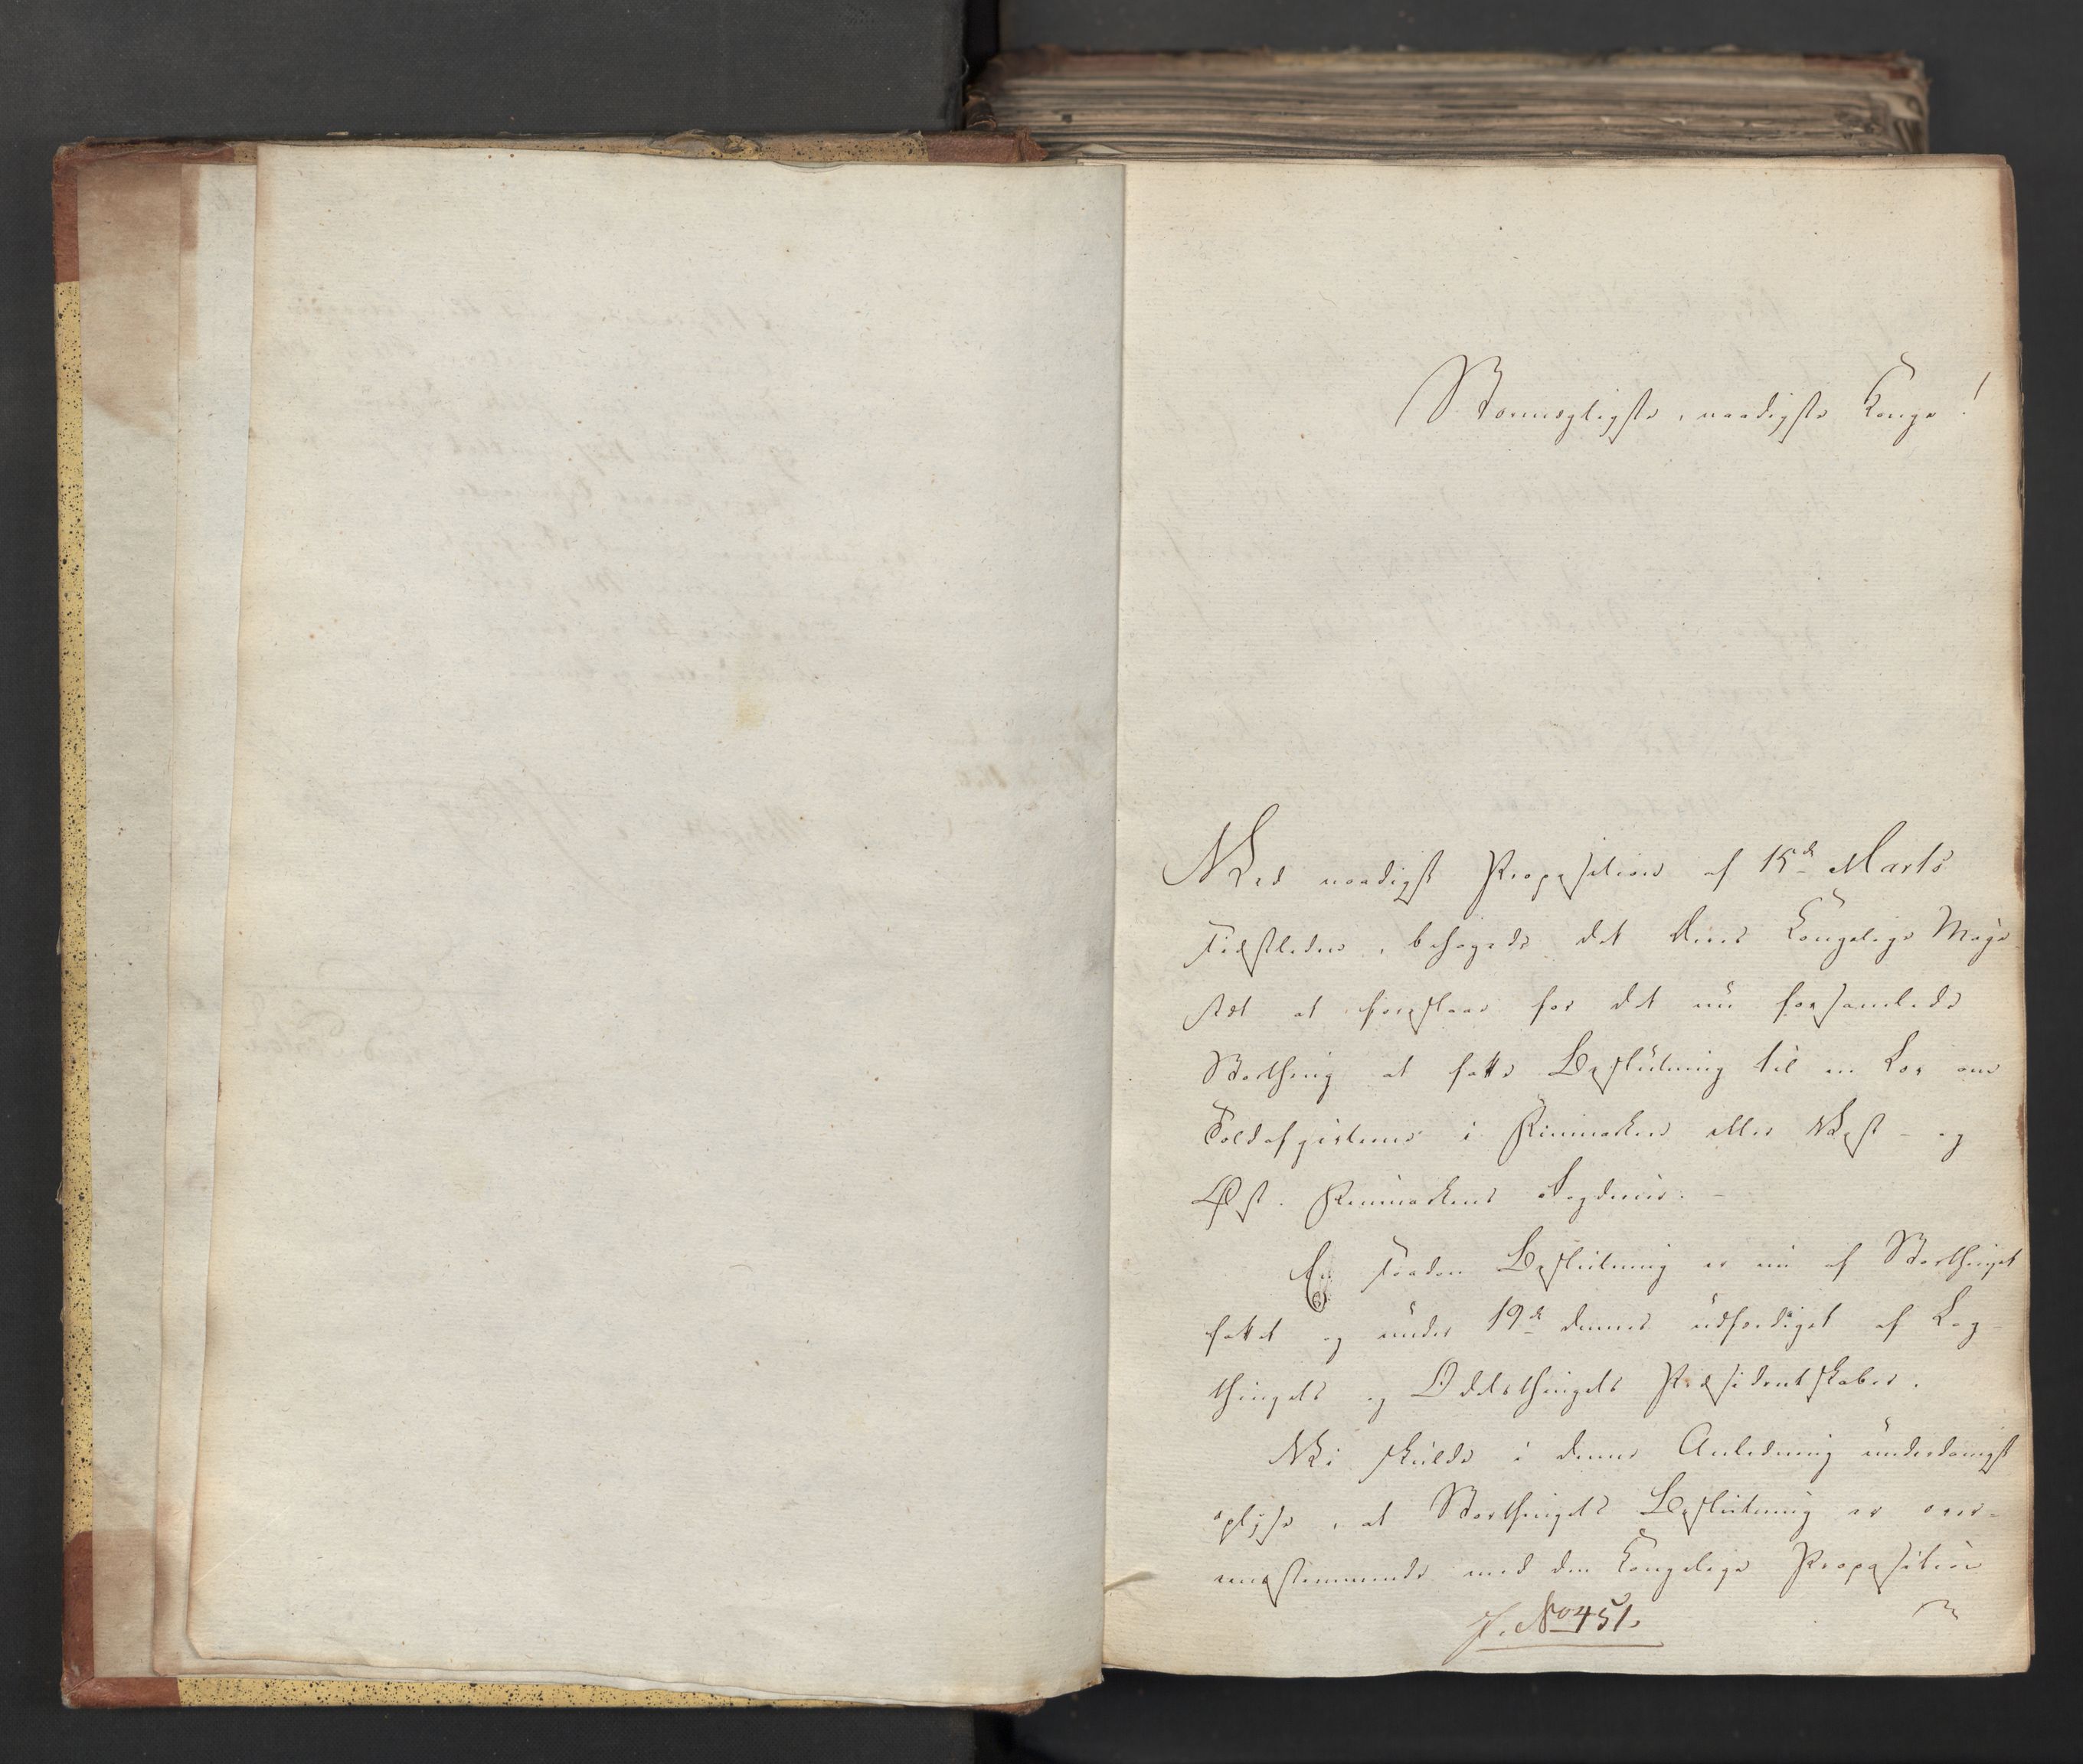 Stormægtigste, naadigste Konge!
Ved naadigst Proposition af 15de Marts
sidstleden, behagede det Deres Kongelige Maje-
stæt at foreslaae for det nu forsamlede
Storthing at fatte Beslutning til en Lov om
Toldafgivterne i Finmarken eller Vest- og
Øst-Finmarkens Fogderier.
En saadan Beslutning er nu af Storthinget
fattet og under 19de dennes udfærdiget af Lag-
thingets og Odelsthingets Præsidentskaber.
Vi skulde i denne Anledning underdanigst
oplyse, at Storthingets Beslutning er over-
eensstemmende med den Kongelige Proposition
J. No 451.